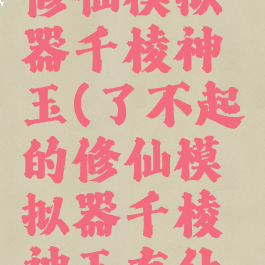 修仙模拟
器千棱神
玉(了不起
的修仙模
拟器千棱
神玉有什